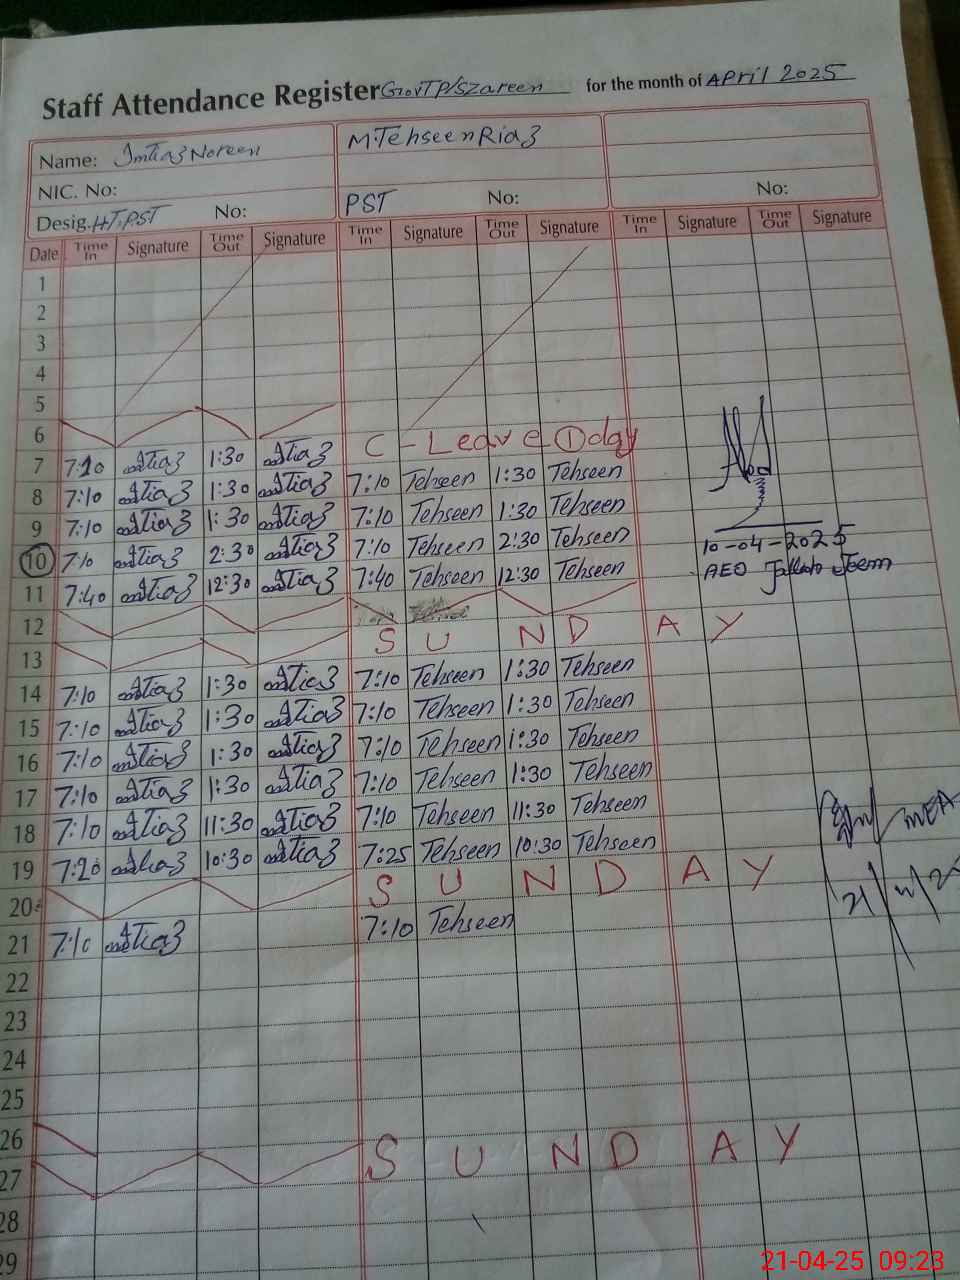 Staff Attendance Register GovT P/S Zareen for the month of April 2025
Name: Imtiaz Noreen M.Tehseen Riaz
NIC. No:
Desig. HT:PST No: PST No: No:
Date Time In Signature Time Out Signature Time In Signature Time Out Signature Time In Signature Time Out Signature
1
2
3
4
5
6
7 7:10 Imtiaz 1:30 Imtiaz C-Leave ① day
8 7:10 Imtiaz 1:30 Imtiaz 7:10 Tehseen 1:30 Tehseen
9 7:10 Imtiaz 1:30 Imtiaz 7:10 Tehseen 1:30 Tehseen
10 7:10 Imtiaz 2:30 Imtiaz 7:10 Tehseen 2:30 Tehseen 10-04-2025
11 7:40 Imtiaz 12:30 Imtiaz 7:40 Tehseen 12:30 Tehseen AEO
12
13 SUNDAY
14 7:10 Imtiaz 1:30 Imtiaz 7:10 Tehseen 1:30 Tehseen
15 7:10 Imtiaz 1:30 Imtiaz 7:10 Tehseen 1:30 Tehseen
16 7:10 Imtiaz 1:30 Imtiaz 7:10 Tehseen 1:30 Tehseen
17 7:10 Imtiaz 1:30 Imtiaz 7:10 Tehseen 1:30 Tehseen
18 7:10 Imtiaz 11:30 Imtiaz 7:10 Tehseen 11:30 Tehseen MEA
19 7:20 Imtiaz 10:30 Imtiaz 7:25 Tehseen 10:30 Tehseen
20 SUNDAY 21/4/25
21 7:10 Imtiaz 7:10 Tehseen
22
23
24
25
26
27 SUNDAY
28
29
21-04-25 09:23